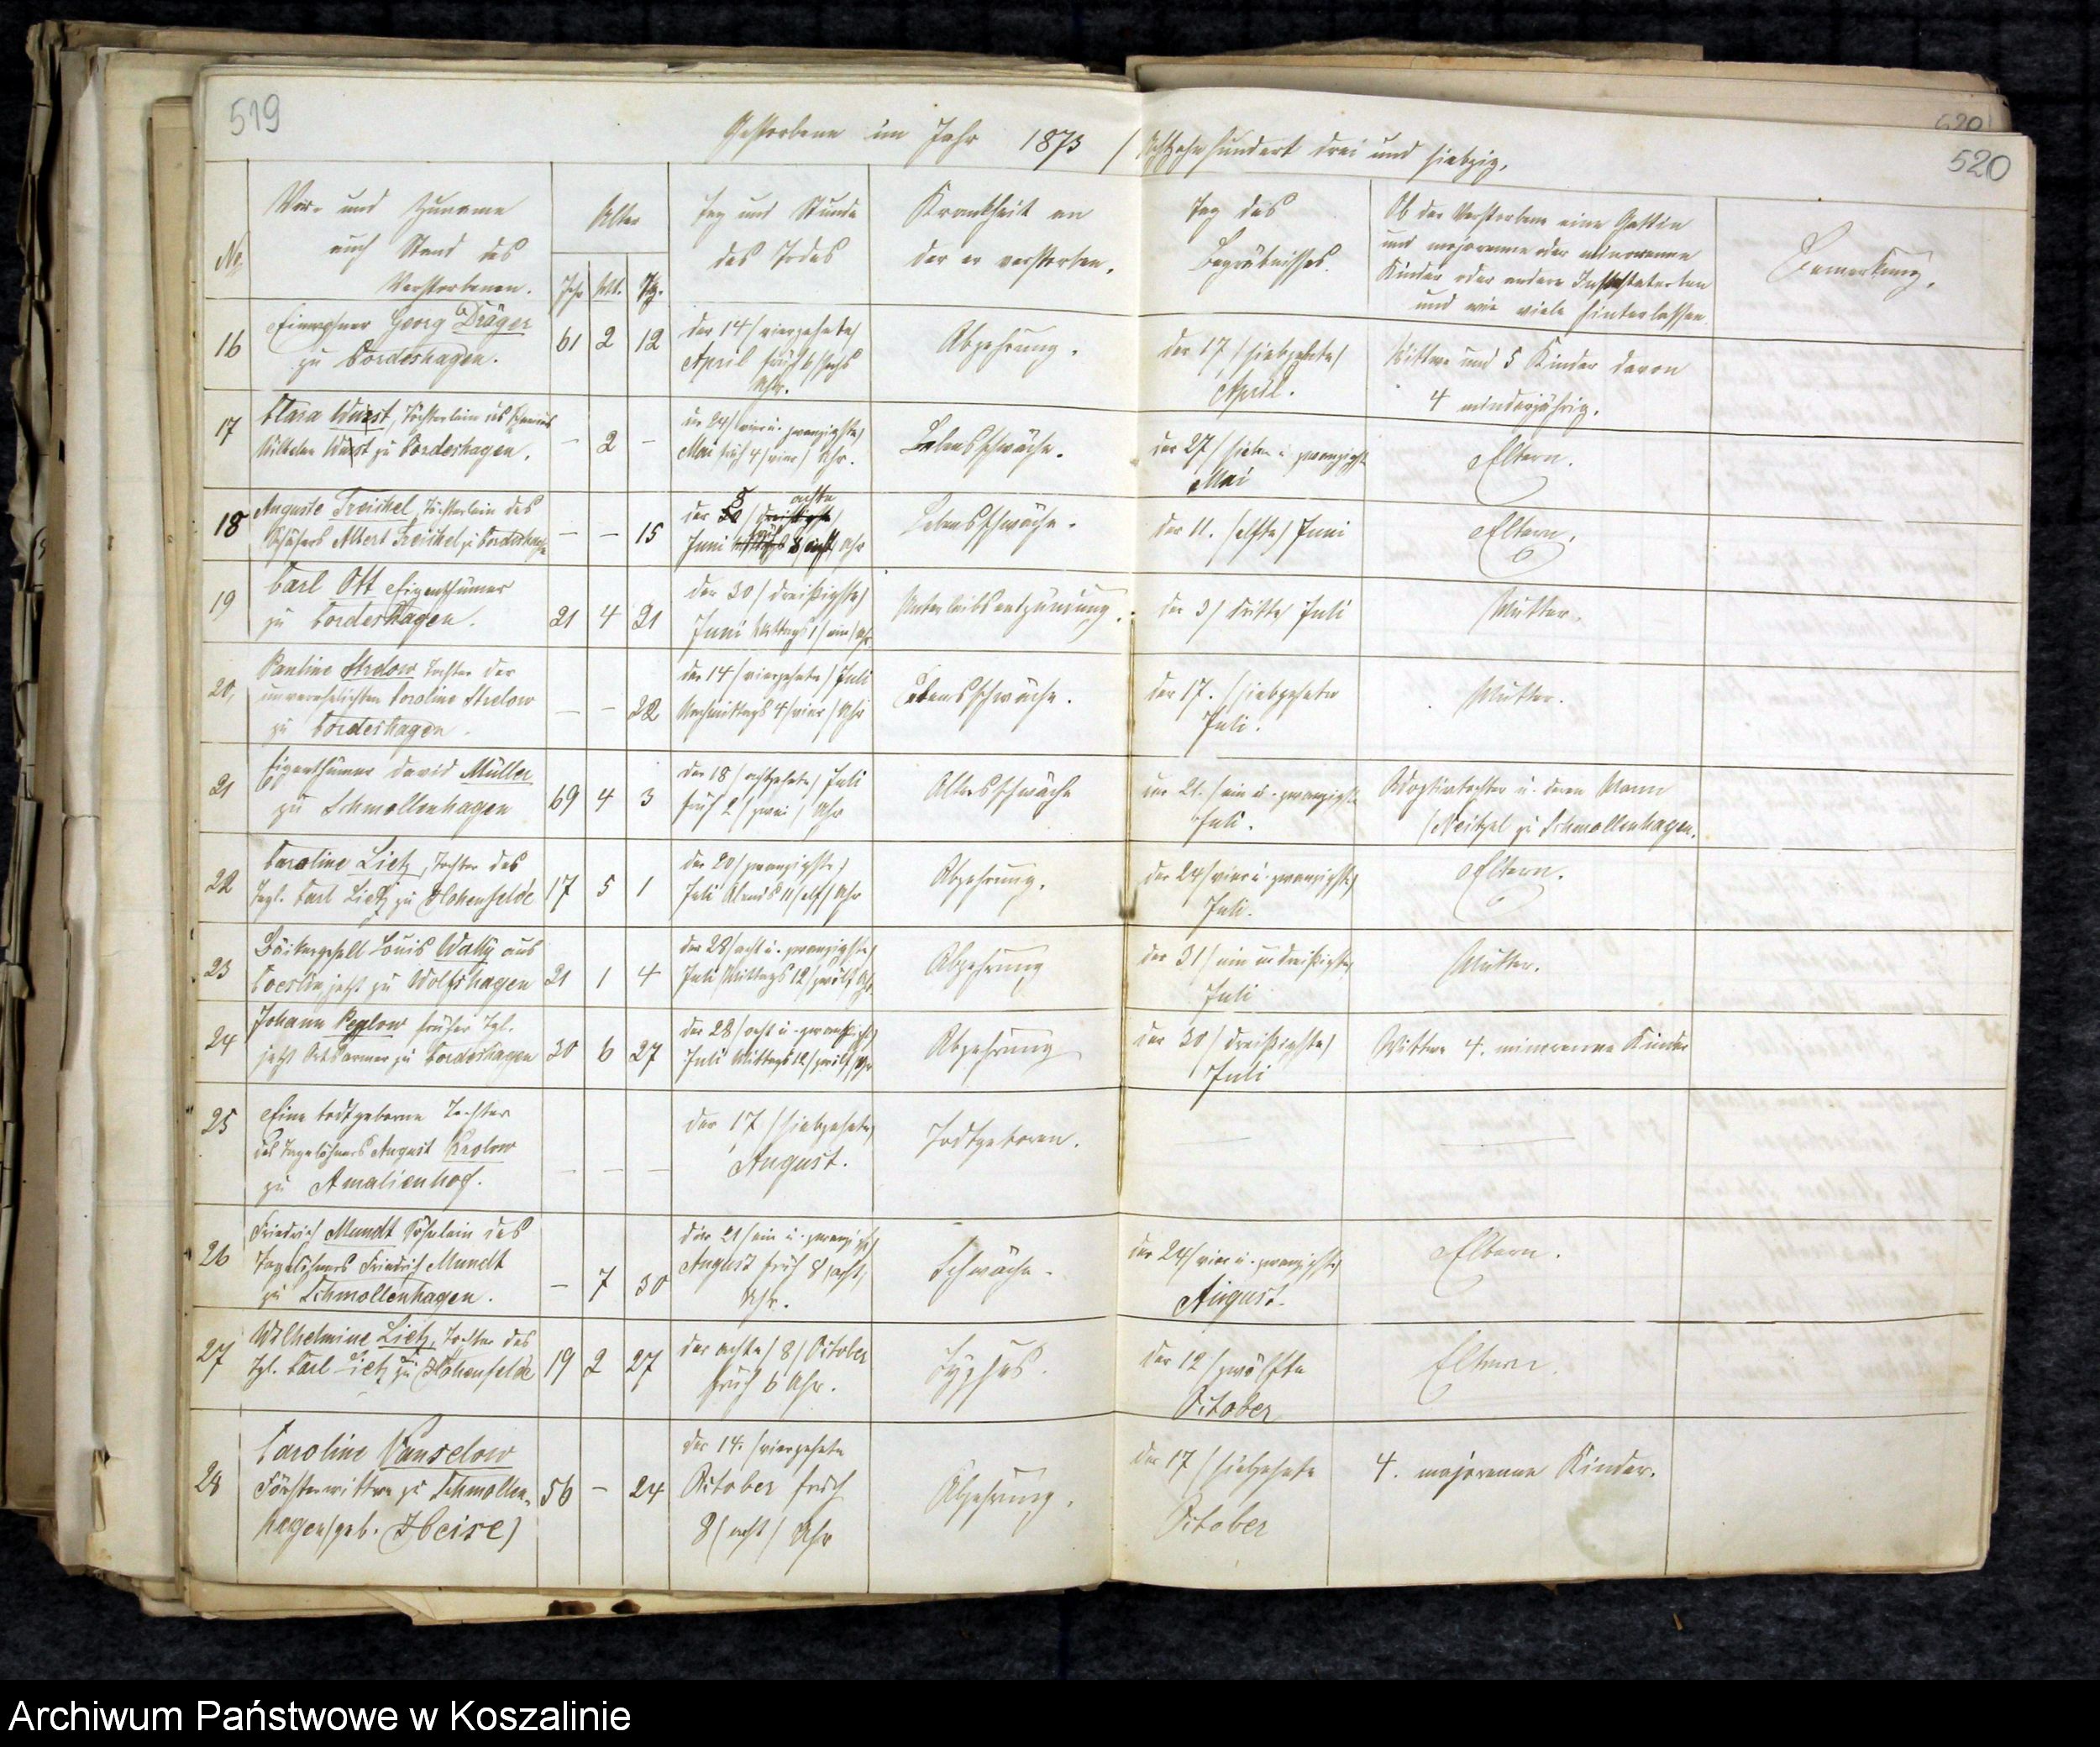 519
520
520
Gestorbene im Jahr 1873 / Achtzehnhundert drei und siebzig.
No
Vor- und Zuname
auch Stand des
Verstorbenen.
Alter
Jahr Mt. Tg.
Tag und Stunde
des Todes
Krankheit an
der er verstorben.
Tag des
Begräbnisses.
Ob der Verstorbene eine Gattin
und majorenne oder minorenne
Kinder oder andere
und wie viele hinterlassen
Bemerkung.
16
Einwohner Georg Dräger
zu Cordeshagen.
61 2 12
der 14 / vierzehnte /
April früh 6 / sechs
Uhr.
Abzehrung.
der 17 / siebzehnte /
April.
Wittwe und 5 Kinder davon
4 minderjährig.
17
Clara Wurst, Töchterlein des
Wilhelm Wurst zu Cordeshagen.
– 2 –
der 24 / vier u. zwanzigste /
Mai früh 4 / vier / Uhr.
Lebensschwäche.
der 27 / sieben u zwanzigste
Mai
Eltern.
18
Auguste Treichel, Töchterlein des
Schäfers Albert Treichel zu Cordeshagen
– – 15
der 8 / achte /
Juni früh 8 / acht / Uhr
Lebensschwäche.
der 11. / elfte / Juni
Eltern.
19
Carl Ott Eigenthümer
zu Cordeshagen.
21 4 21
der 30 / dreißigste /
Juni Mittags 1 / ein / Uhr
Unterleibsentzündung.
der 3 / dritte / Juli
Mutter.
20.
Pauline Strelow Tochter der
unverehelichten Caroline Strelow
zu Cordeshagen.
– – 22
der 14 / vierzehnte / Juli
Nachmittags 4 / vier / Uhr
Lebensschwäche.
der 17. / siebzehnte
Juli.
Mutter.
21
Eigenthümer David Müller
zu Schmollenhagen
69 4 3
der 18 / achtzehnte / Juli
früh 2 / zwei / Uhr
Altersschwäche
der 21. / ein u. zwanzigste
Juli.
Adoptivtochter u. deren Mann
/ Neitzel zu Schmollenhagen.
22
Caroline Lietz, Tochter des
Tagl. Carl Lietz zu Hohenfelde
17 5 1
der 20 / zwanzigste /
Juli Abends 11 / elf / Uhr
Abzehrung.
der 24 / vier u. zwanzigste /
Juli.
Eltern.
23
Bäckergesell Louis Wally aus
Coeslin, jetzt zu Wolfshagen
21 1 4
der 28 / acht u. zwanzigste /
Juli Mittags 12 / zwölf Uhr
Abzehrung
der 31 / ein u dreißigste /
Juli
Mutter.
24
Johann Peglow früher Tgl.
jetzt Ortsarmer zu Cordeshagen
30 6 27
der 28 / acht u. zwanzigste /
Juli Mittags 12 / zwölf / Uhr
Abzehrung
der 30 / dreißigste /
Juli
Wittwe 4. minorenne Kinder
25
Eine todtgeborne Tochter
des Tagelöhners August Krolow
zu Amalienhof.
– – –
der 17 / siebzehnte /
August.
Todtgeboren.
26
Friedrich Mundt Söhnlein des
Tagelöhners Friedrich Mundt
zu Schmollenhagen.
– 7 30
der 21 / ein u. zwanzigste /
August früh 8 / acht /
Uhr.
Schwäche.
der 24 / vier u. zwanzigste /
August.
Eltern.
27
Wilhelmine Lietz, Tochter des
Tgl. Carl Lietz zu Hohenfelde
19 2 27
der achte / 8 / October
früh 6 Uhr.
Typhus.
der 12 / zwölfte
October
Eltern.
28
Caroline Vanselow
Försterwittwe zu Schmollen-
hagen (geb. Heise)
56 – 24
der 14. / vierzehnte
October früh
8 / acht / Uhr
Abzehrung.
der 17 / siebzehnte
October
4. majorenne Kinder.
Archiwum Państwowe w Koszalinie